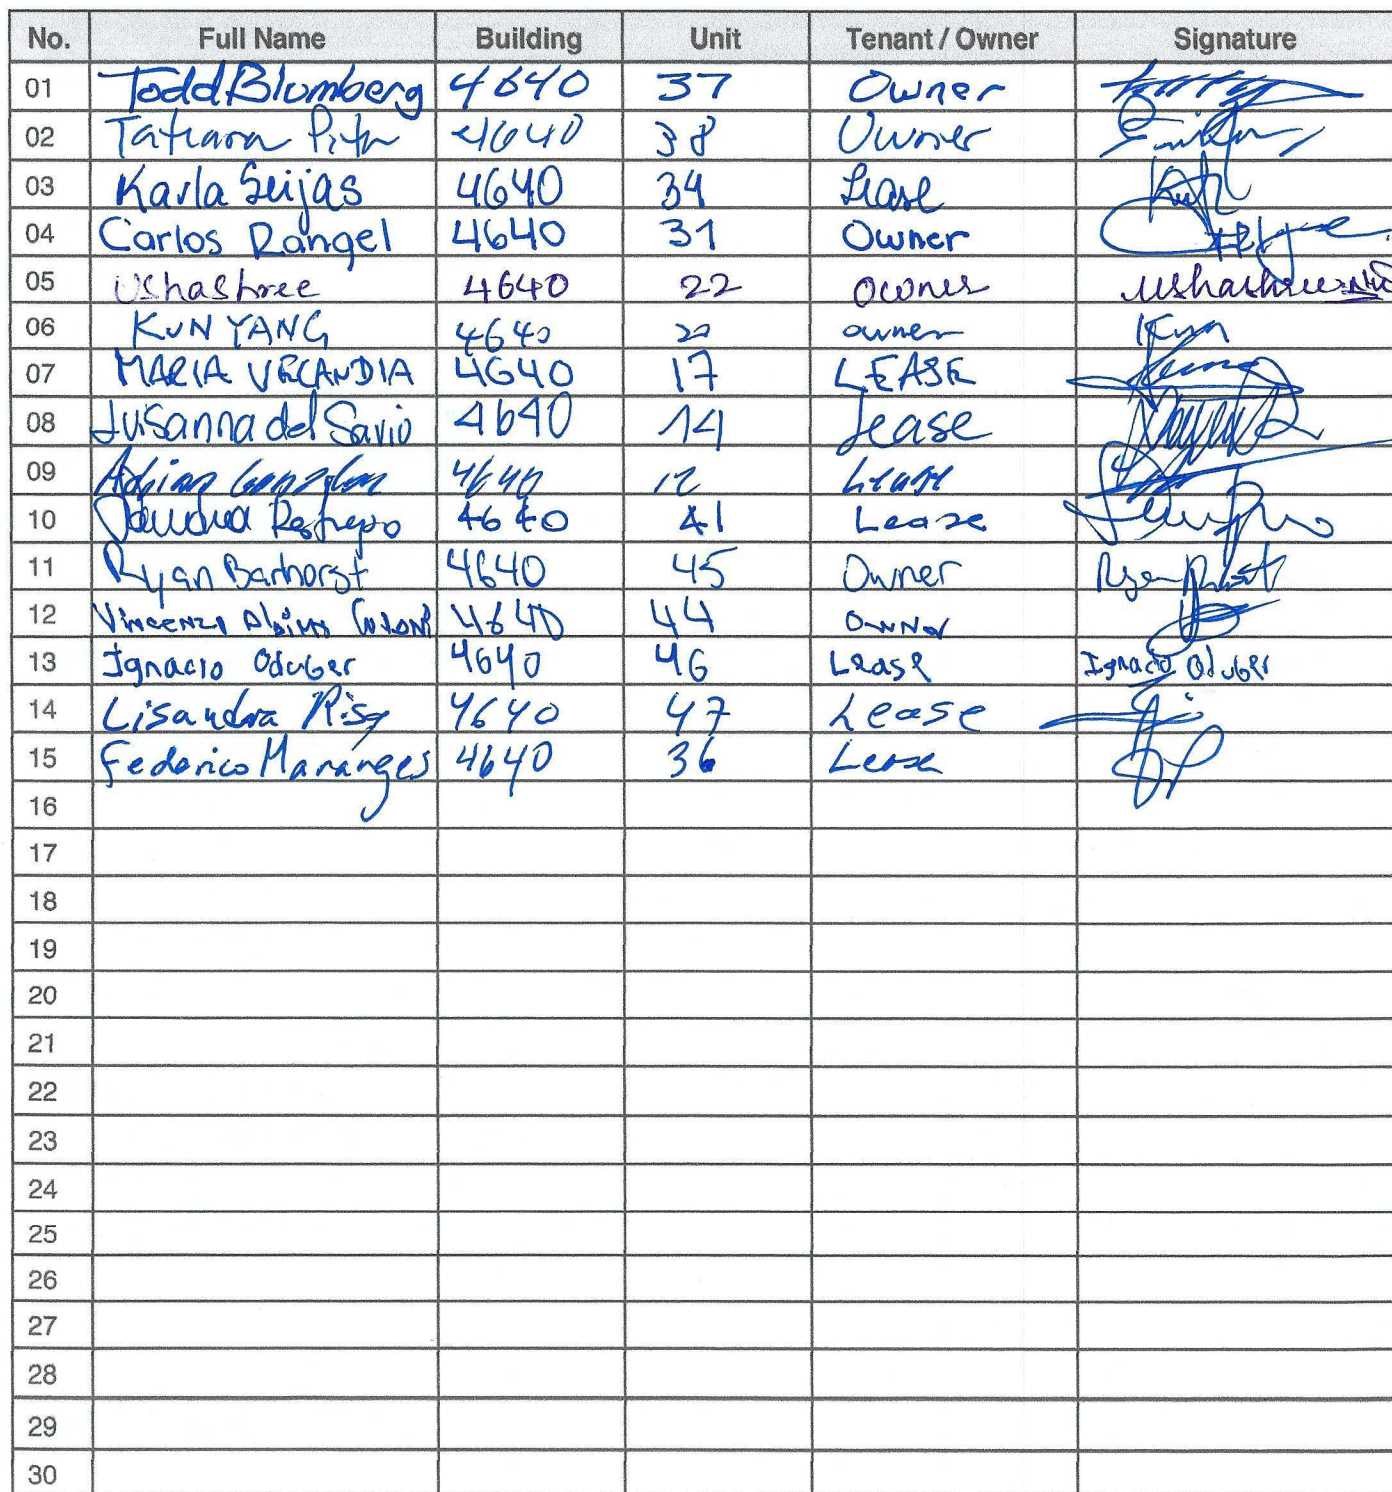 No. Full Name Building Unit Tenant / Owner Signature
01 Todd Blumberg 4640 37 Owner
02 Tatiana Pita 4640 38 Owner
03 Karla Seijas 4640 34 Lease
04 Carlos Rangel 4640 31 Owner
05 Ushashree 4640 22 owner Ushashree
06 KUN YANG 4640 20 owner Kun
07 MARIA URCANDIA 4640 17 LEASE
08 Susanna del Savio 4640 14 Lease
09 Adrian Gonzalez 4640 12 Lease
10 Sandra Restrepo 4640 41 Lease
11 Ryan Barhorst 4640 45 Owner
12 Vincenzo Albino 4640 44 Owner
13 Ignacio Oduber 4640 46 Lease Ignacio Oduber
14 Lisandra 4640 47 Lease
15 Federico Maranges 4640 36 Lease
16
17
18
19
20
21
22
23
24
25
26
27
28
29
30